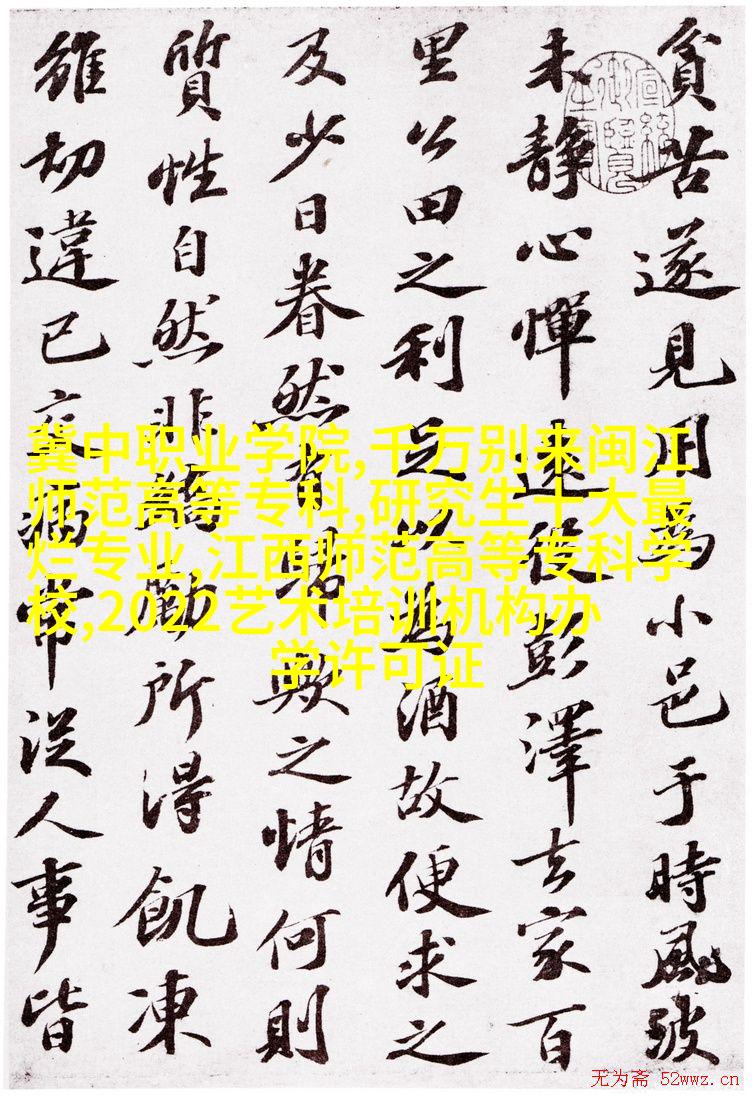 貧苦遂見用為小邑于時風波
未靜心憚遠役彭澤去家百
里公田之利足以為酒故便求之
及少日眷然有歸歟之情何則
質性自然非矯勵所得飢凍
雖切違己交病常從人事皆
冀中职业学院,千万别来闽江
师范高等专科,研究生十大最
烂专业,江西师范高等专科学
校,2022艺术培训机构办
学许可证
无为斋 52wwz.cn